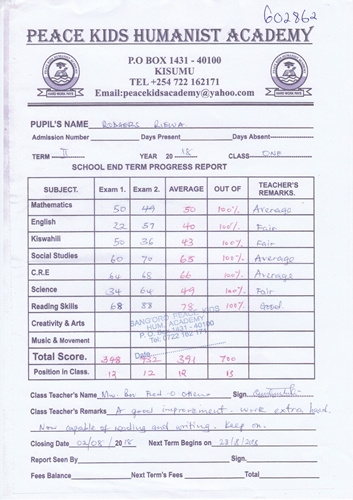 602862
PEACE KIDS HUMANIST ACADEMY
P.O BOX 1431 - 40100
KISUMU
TEL +254 722 162171
Email:peacekidsacademy@yahoo.com
PUPIL'S NAME RODGERS
Admission Number Days Present Days Absent
TERM II YEAR 2018 CLASS ONE
SCHOOL END TERM PROGRESS REPORT
SUBJECT. Exam 1. Exam 2. AVERAGE OUT OF TEACHER'S REMARKS.
Mathematics 50 49 50 100% Average
English 22 57 40 100% Fair
Kiswahili 50 36 43 100% Fair
Social Studies 60 70 65 100% Average
C.R.E 64 68 66 100% Average
Science 34 64 49 100% Fair
Reading Skills 68 88 78 100% Good
Creativity & Arts
Music & Movement
SANG'ORO PEACE KIDS
HUM. ACADEMY
P. O. BOX 1431 - 40100
Tel: 0722 162 171
Date
Total Score. 348 432 391 700
Position in Class. 13 12 12 13
Class Teacher's Name Sign.
Class Teacher's Remarks A good improvement. work extra hard.
Now capable of reading and writing. Keep on.
Closing Date 02/08/2018 Next Term Begins on 28/8/2018
Report Seen By Sign
Fees Balance Next Term's Fees Total